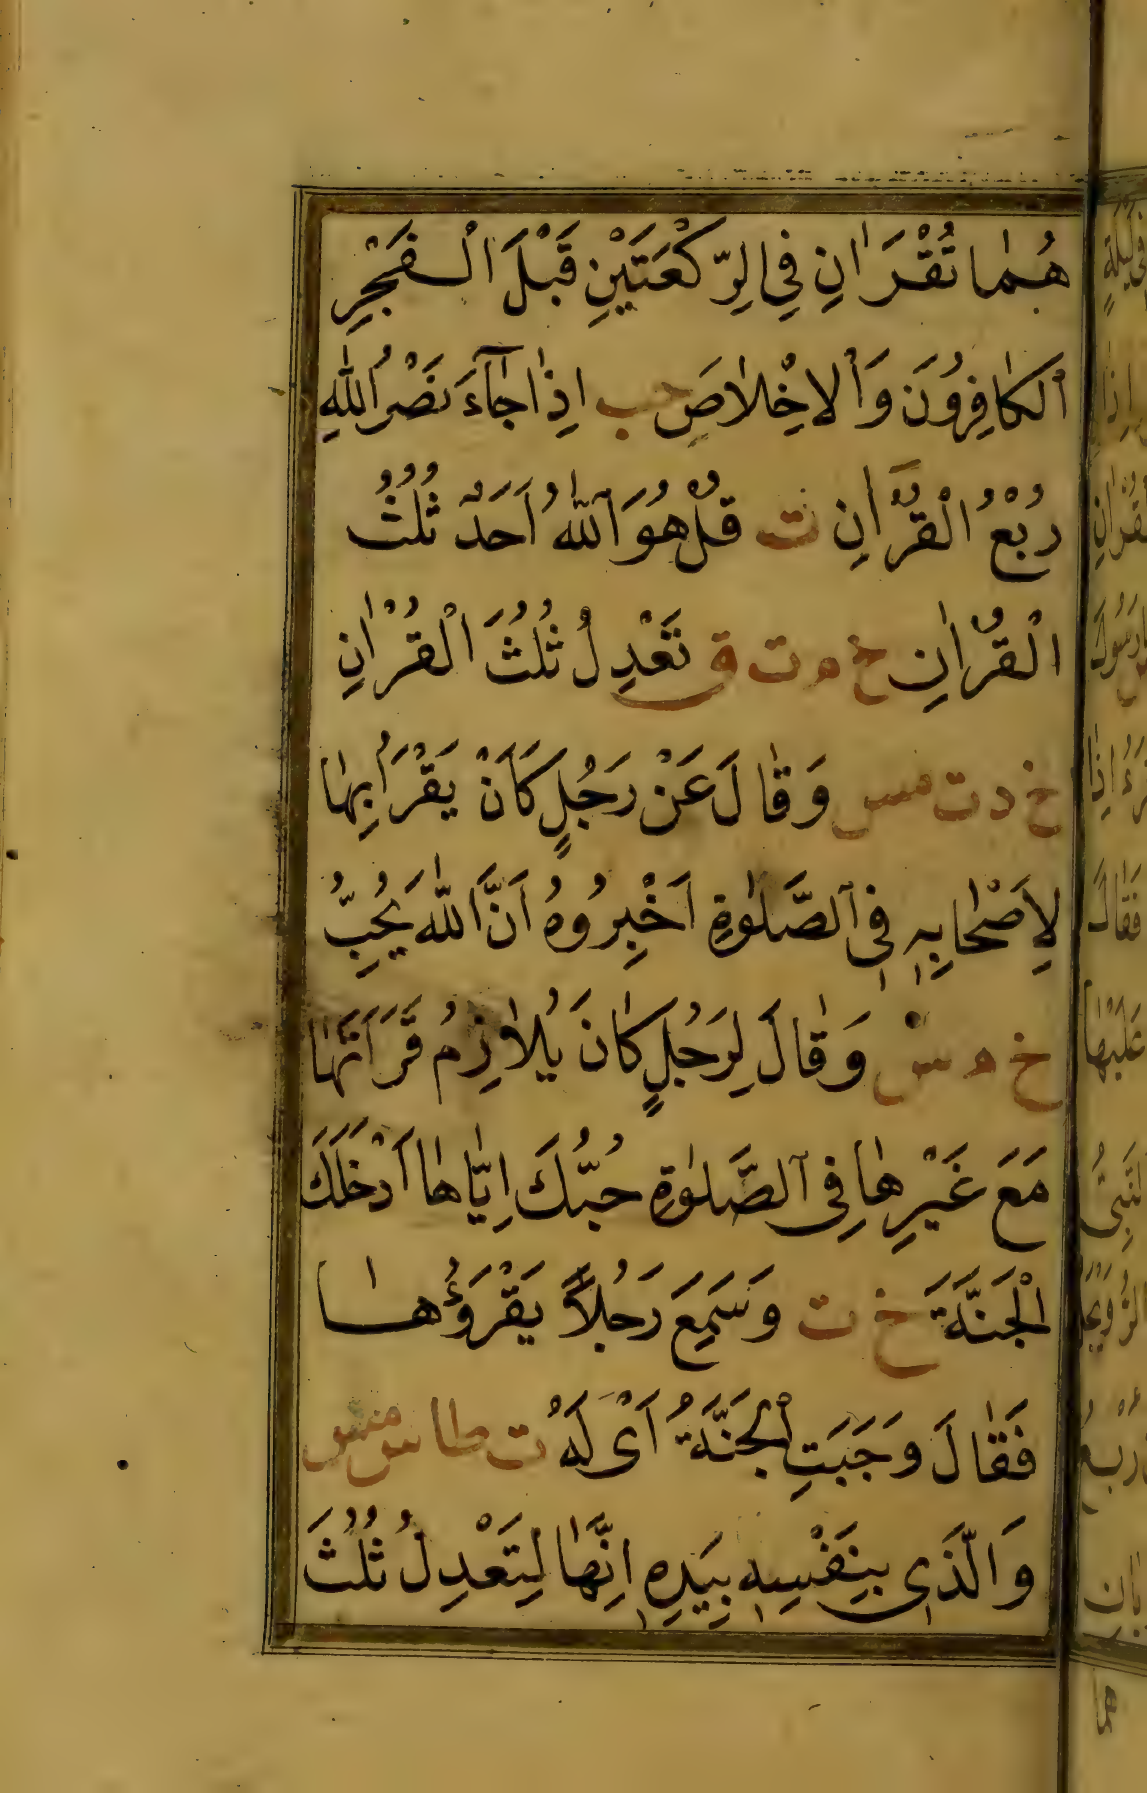 هُمٰا تُقْرَاٰنِ فِي الرِّكْعَتَيْنِ قَبْلَ الْفَجْرِ
اَلكٰافِرُونَ وَاْلاِخْلاٰصَ حب اِذٰا جٰآءَ نَصْرُ اللّٰهِ
رُبْعُ الْقُرْاٰنِ ت قُلْ هُوَ اللّٰهُ اَحَدٌ ثُلُثُ
الْقُرْاٰنِ خ م ت ق تَعْدِلُ ثُلُثَ الْقُرْاٰنِ
خ د ت مس وَقٰالَ عَنْ رَجُلٍ كَانَ يَقْرَأُ بِهٰا
لِاَصْحٰابِهِ فِي الصَّلٰوةِ اَخْبِرُوهُ اَنَّ اللّٰهَ يُحِبُّ
خ م س وَقٰالَ لِرَجُلٍ كٰانَ يُلاٰزِمُ قَرَاَتَهٰا
مَعَ غَيْرِهٰا فِي الصَّلٰوةِ حُبُّكَ اِيّٰاهٰا اَدْخَلَكَ
الْجَنَّةَ خ ت وَسَمِعَ رَجُلاً يَقْرَؤُهٰا
فَقٰالَ وَجَبَتِ الْجَنَّةُ اَىْ لَهُ ت طا س مس
وَالَّذِي بِنَفْسِهِ بِيَدِهِ اِنَّهٰا لِتَعْدِلُ ثُلُثَ